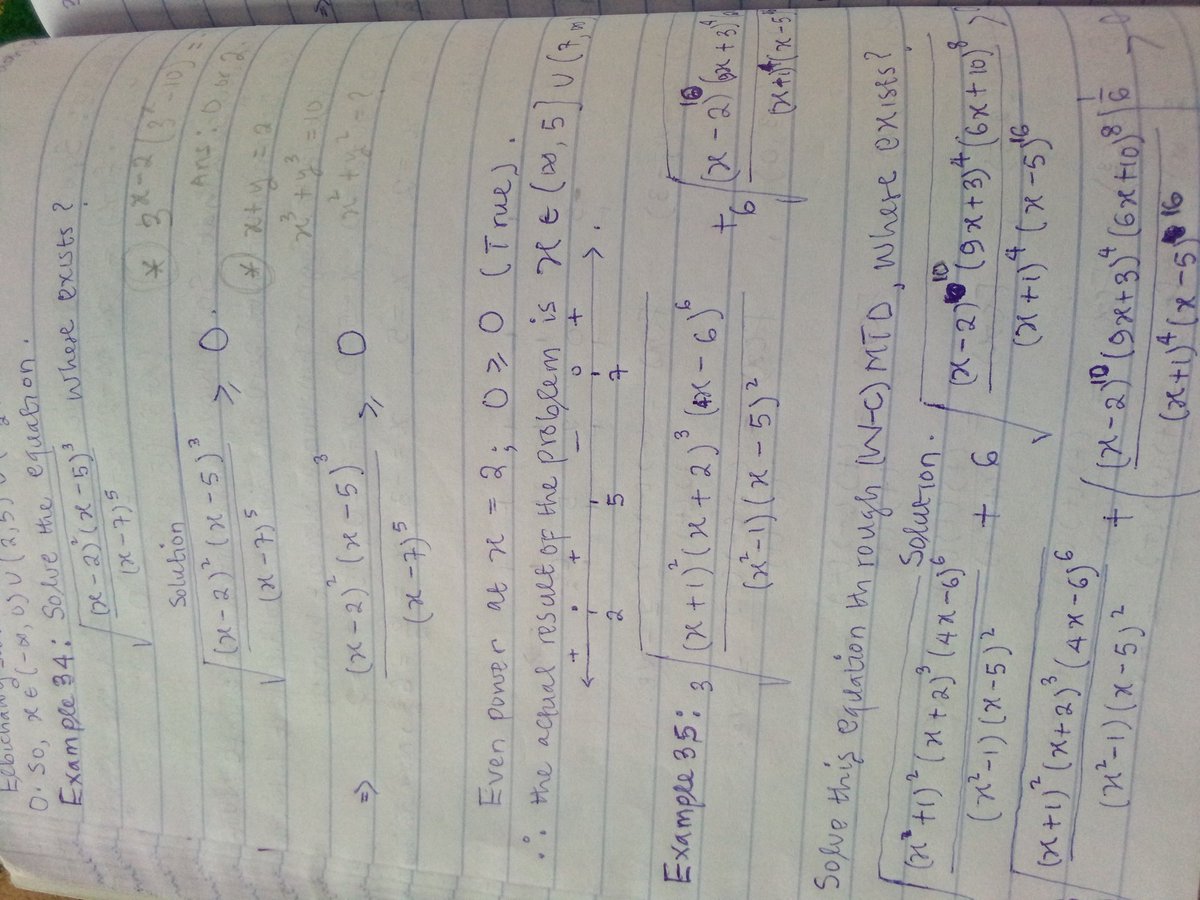 0. So, x ∈ (-∞, 0) ∪ (2,5) ∪
Example 34: Solve the equation.
√((x-2)²(x-5)³/(x-7)⁵) where exists?
Solution
√((x-2)²(x-5)³/(x-7)⁵) ≥ 0.
⇒ (x-2)²(x-5)³/(x-7)⁵ ≥ 0
(*) 3^x-2 (3^x-10) =
Ans: 0 or 2.
(*) x+y=2
x³+y³=10
x²+y²=?
Even power at x = 2; 0 ≥ 0 (True).
∴ the actual result of the problem is x ∈ (∞, 5] ∪ (7,
+ + - 0 +
2 5 7
Example 35: 3√((x+1)²(x+2)³(4x-6)⁶/(x²-1)(x-5)²) + 6√((x-2)¹⁰(9x+3)⁴/(x+1)⁴(x-5)
Solve this equation through (W-C) MTD, where exists?
Solution.
√((x²+1)²(x+2)³(4x-6)⁶/(x²-1)(x-5)²) + 6√((x-2)¹⁰(9x+3)⁴(6x+10)⁸/(x+1)⁴(x-5)¹⁶)
√((x+1)²(x+2)³(4x-6)⁶/(x²-1)(x-5)²) + ((x-2)¹⁰(9x+3)⁴(6x+10)⁸/(x+1)⁴(x-5)¹⁶)^1/6